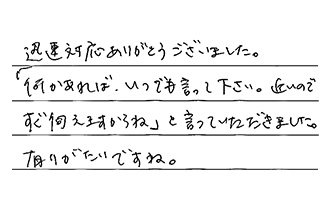 迅速対応ありがとうございました。
「何かあれば、いつでも言って下さい。近いので
すぐ伺えますからね」と言っていただきました。
有りがたいですね。